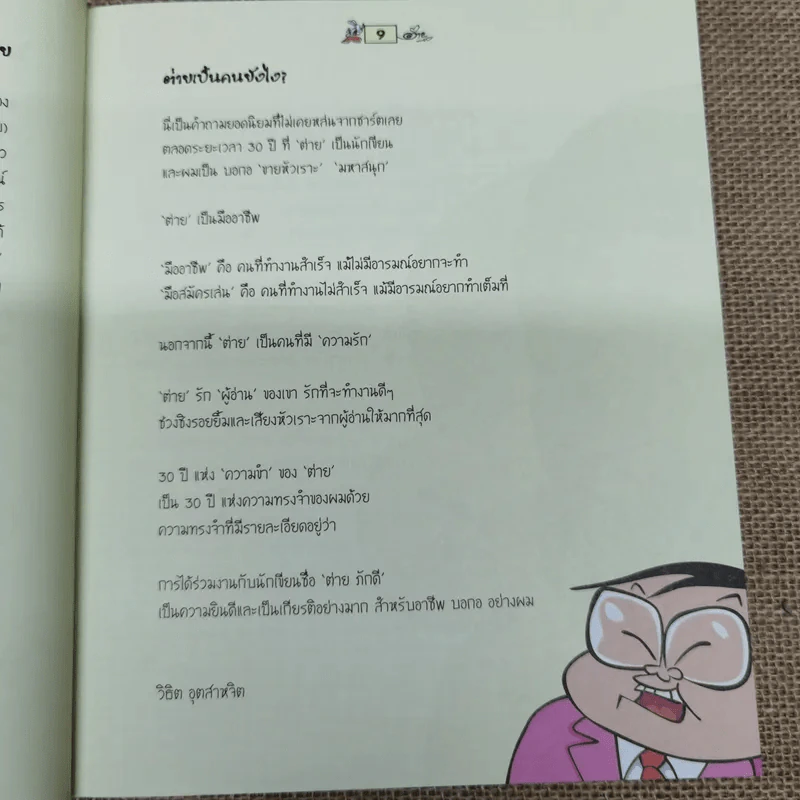 ย
อง
ย)
ว
น์
ร
ด้
9
ต่าย
ต่ายเป็นคนยังไง?
นี่เป็นคำถามยอดนิยมที่ไม่เคยหล่นจากชาร์ตเลย
ตลอดระยะเวลา 30 ปี ที่ 'ต่าย' เป็นนักเขียน
และผมเป็น บอกอ 'ขายหัวเราะ' 'มหาสนุก'
'ต่าย' เป็นมืออาชีพ
'มืออาชีพ' คือ คนที่ทำงานสำเร็จ แม้ไม่มีอารมณ์อยากจะทำ
'มือสมัครเล่น' คือ คนที่ทำงานไม่สำเร็จ แม้มีอารมณ์อยากทำเต็มที่
นอกจากนี้ 'ต่าย' เป็นคนที่มี 'ความรัก'
'ต่าย' รัก 'ผู้อ่าน' ของเขา รักที่จะทำงานดีๆ
ช่วงชิงรอยยิ้มและเสียงหัวเราะจากผู้อ่านให้มากที่สุด
30 ปี แห่ง 'ความขำ' ของ 'ต่าย'
เป็น 30 ปี แห่งความทรงจำของผมด้วย
ความทรงจำที่มีรายละเอียดอยู่ว่า
การได้ร่วมงานกับนักเขียนชื่อ 'ต่าย ภักดี'
เป็นความยินดีและเป็นเกียรติอย่างมาก สำหรับอาชีพ บอกอ อย่างผม
วิธิต อุตสาหจิต